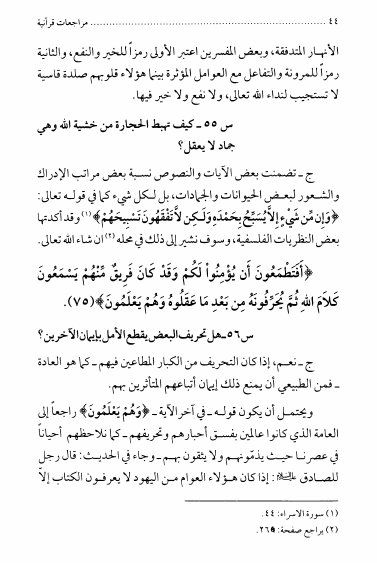 ٤٤ ........................................................ مراجعات قرآنية
الأنهار المتدفقة، وبعض المفسرين اعتبر الأولى رمزاً للخير والنفع، والثانية
رمزاً للمرونة والتفاعل مع العوامل المؤثرة بينما هؤلاء قلوبهم صلدة قاسية
لا تستجيب لنداء الله تعالى، ولا نفع ولا خير فيها.
س ٥٥ ـ كيف تهبط الحجارة من خشية الله وهي
جماد لا يعقل؟
ج ـ تضمنت بعض الآيات والنصوص نسبة بعض مراتب الإدراك
والشعور لبعض الحيوانات والجمادات، بل لكل شيء كما في قوله تعالى:
﴿وَإِن مِّن شَيْءٍ إِلاَّ يُسَبِّحُ بِحَمْدَهِ وَلَكِن لاَّ تَفْقَهُونَ تَسْبِيحَهُمْ﴾(١) وقد أكدتها
بعض النظريات الفلسفية، وسوف نشير إلى ذلك في محله(٢) ان شاء الله تعالى.
﴿أَفَتَطْمَعُونَ أَن يُؤْمِنُواْ لَكُمْ وَقَدْ كَانَ فَرِيقٌ مِّنْهُمْ يَسْمَعُونَ
كَلاَمَ اللهِ ثُمَّ يُحَرِّفُونَهُ مِن بَعْدِ مَا عَقَلُوهُ وَهُمْ يَعْلَمُونَ﴾(٧٥).
س ٥٦ـ هل تحريف البعض يقطع الأمل بإيمان الآخرين؟
ج ـ نعم، إذا كان التحريف من الكبار المطاعين فيهم ـ كما هو العادة
ـ فمن الطبيعي أن يمنع ذلك إيمان أتباعهم المتأثرين بهم.
ويحتمل أن يكون قوله ـ في آخر الآية ـ ﴿وَهُمْ يَعْلَمُونَ﴾ راجعاً إلى
العامة الذي كانوا عالمين بفسق أحبارهم وتحريفهم ـ كما نلاحظهم أحياناً
في عصرنا حيث يذمّونهم ولا يثقون بهم ـ وجاء في الحديث: قال رجل
للصادق عليه السلام: إذا كان هؤلاء العوام من اليهود لا يعرفون الكتاب إلاّ
(١) سورة الاسراء: ٤٤.
(٢) يراجع صفحة: ٢٦٥.